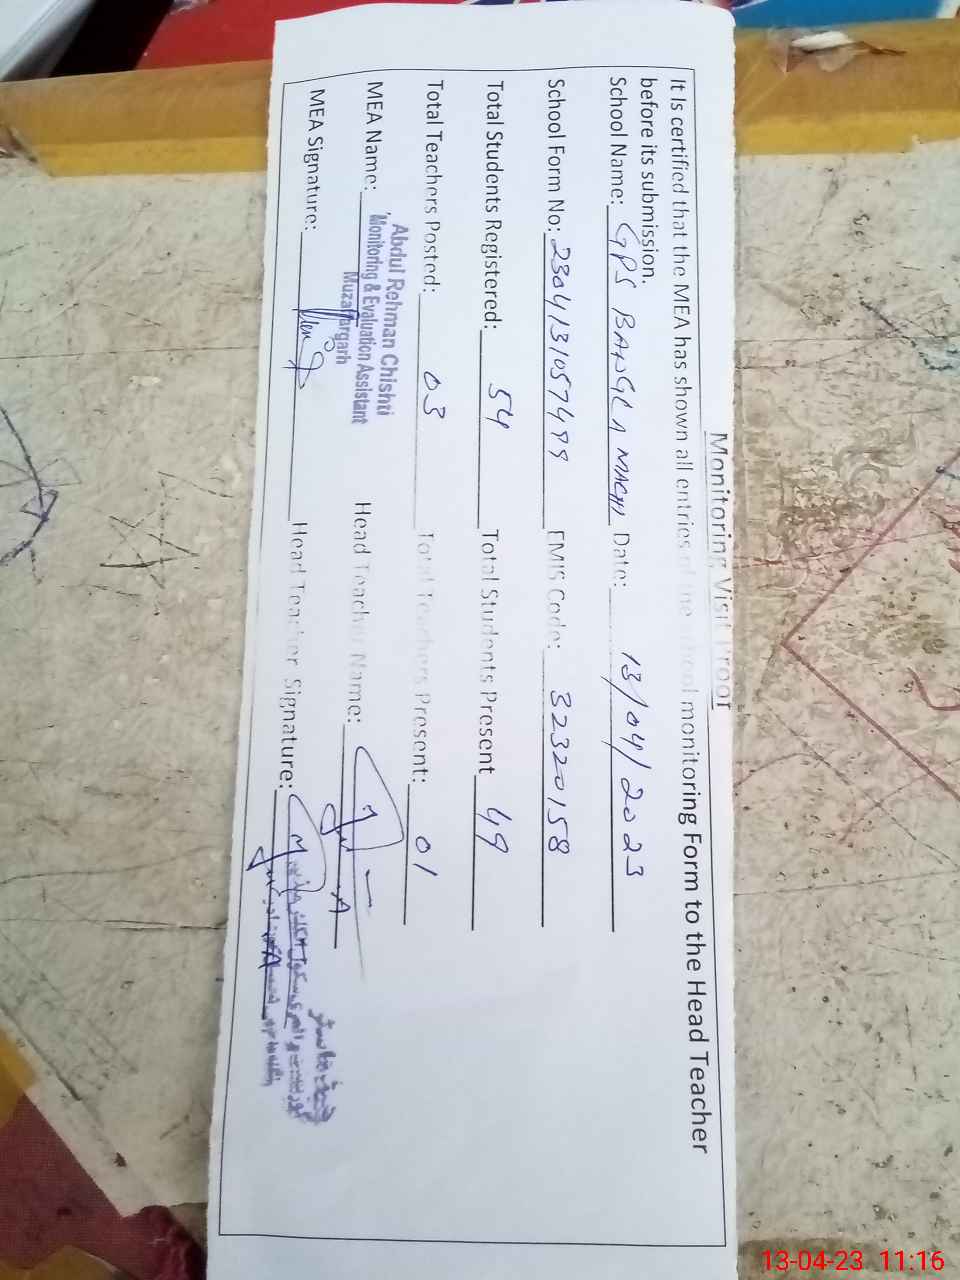 Monitoring Visit Proof
It Is certified that the MEA has shown all entries of the school monitoring Form to the Head Teacher
before its submission.
School Name: GPS BANGLA MACHI Date: 13/04/2023
School Form No: 2304131057499 EMIS Code: 32320158
Total Students Registered: 54 Total Students Present 49
Total Teachers Posted: 03 Total Teachers Present: 01
MEA Name: Abdul Rehman Chishti Head Teacher Name:
Monitoring & Evaluation Assistant
Muzaffargarh
MEA Signature: Head Teacher Signature:
13-04-23 11:16